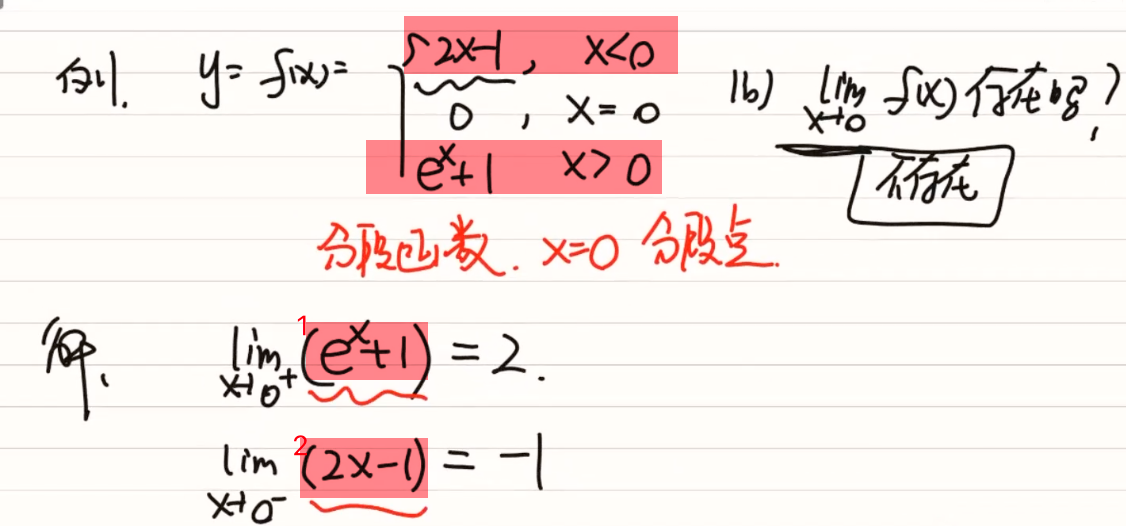 例1. y = f(x) = { 2x-1, x<0
0, x=0
e^x+1 x>0
问 lim x→0 f(x) 存在吗?
不存在
分段函数. x=0 分段点.
解. lim x→0⁺ 1 (e^x+1) = 2.
lim x→0⁻ 2 (2x-1) = -1